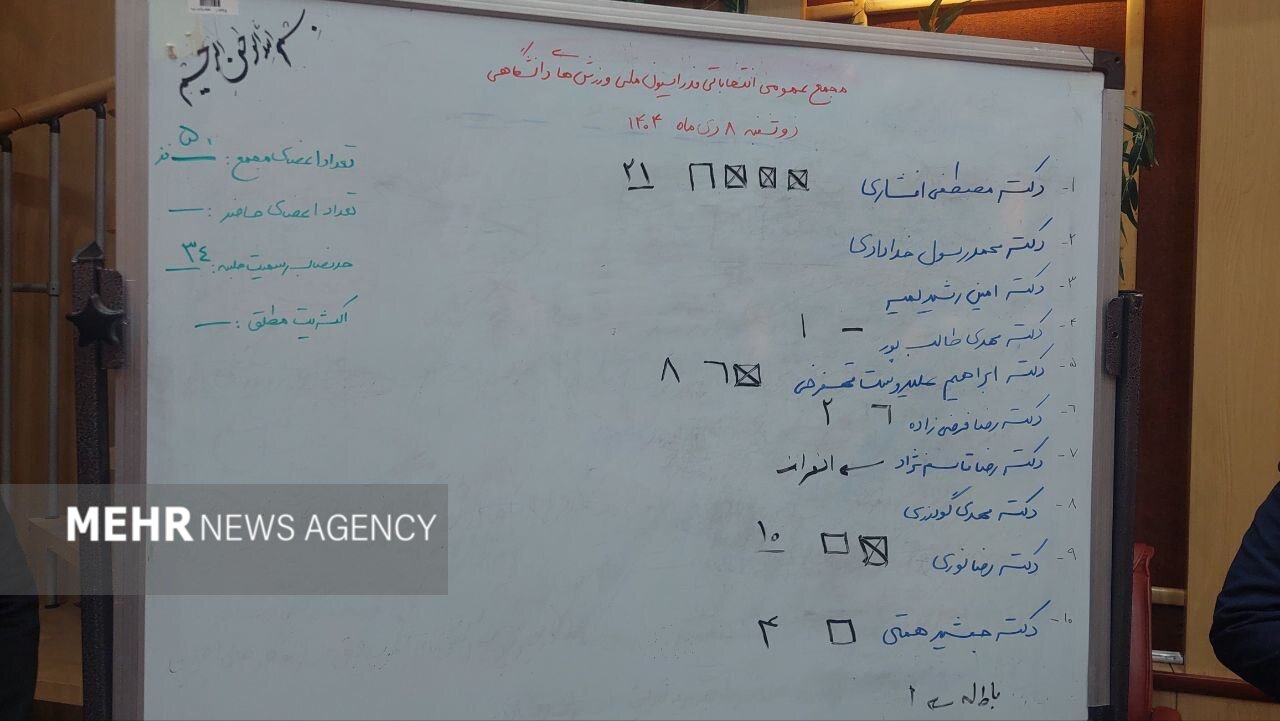 بسم الله الرحمن الرحیم
مجمع عمومی انتخاباتی فدراسیون ملی ورزش های دانشگاهی
دوشنبه ۸ دی ماه ۱۴۰۴
تعداد اعضای مجمع : ۵۰ نفر
تعداد اعضای حاضر :
حدنصاب رسمیت جلسه : ۳۴
اکثریت مطلق :
۱- دکتر مصطفی افشاری ۲۱
۲- دکتر محمدرسول خدادادی
۳- دکتر امین رشید لمیر
۴- دکتر مهدی طالب پور ۱
۵- دکتر ابراهیم علیدوست قهفرخی ۸
۶- دکتر رضا فرضی زاده ۲
۷- دکتر رضا قاسم نژاد انصراف
۸- دکتر مهدی گودرزی
۹- دکتر رضا نوری ۱۰
۱۰- دکتر جمشید همتی ۴
باطله ۱
MEHR NEWS AGENCY